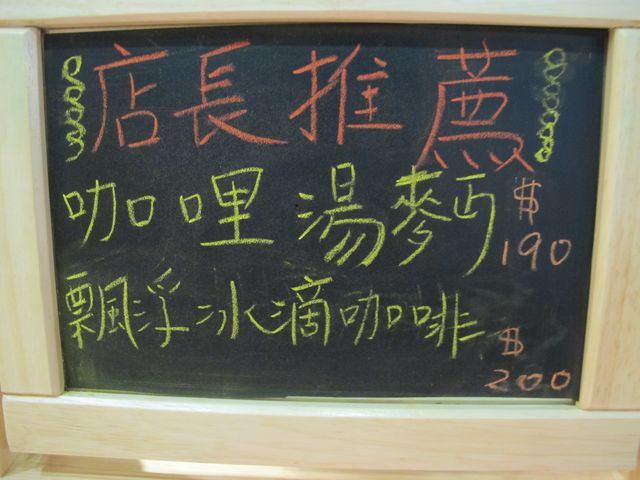 店長推薦
咖哩湯麥丏 $190
飄浮冰滴咖啡 $200